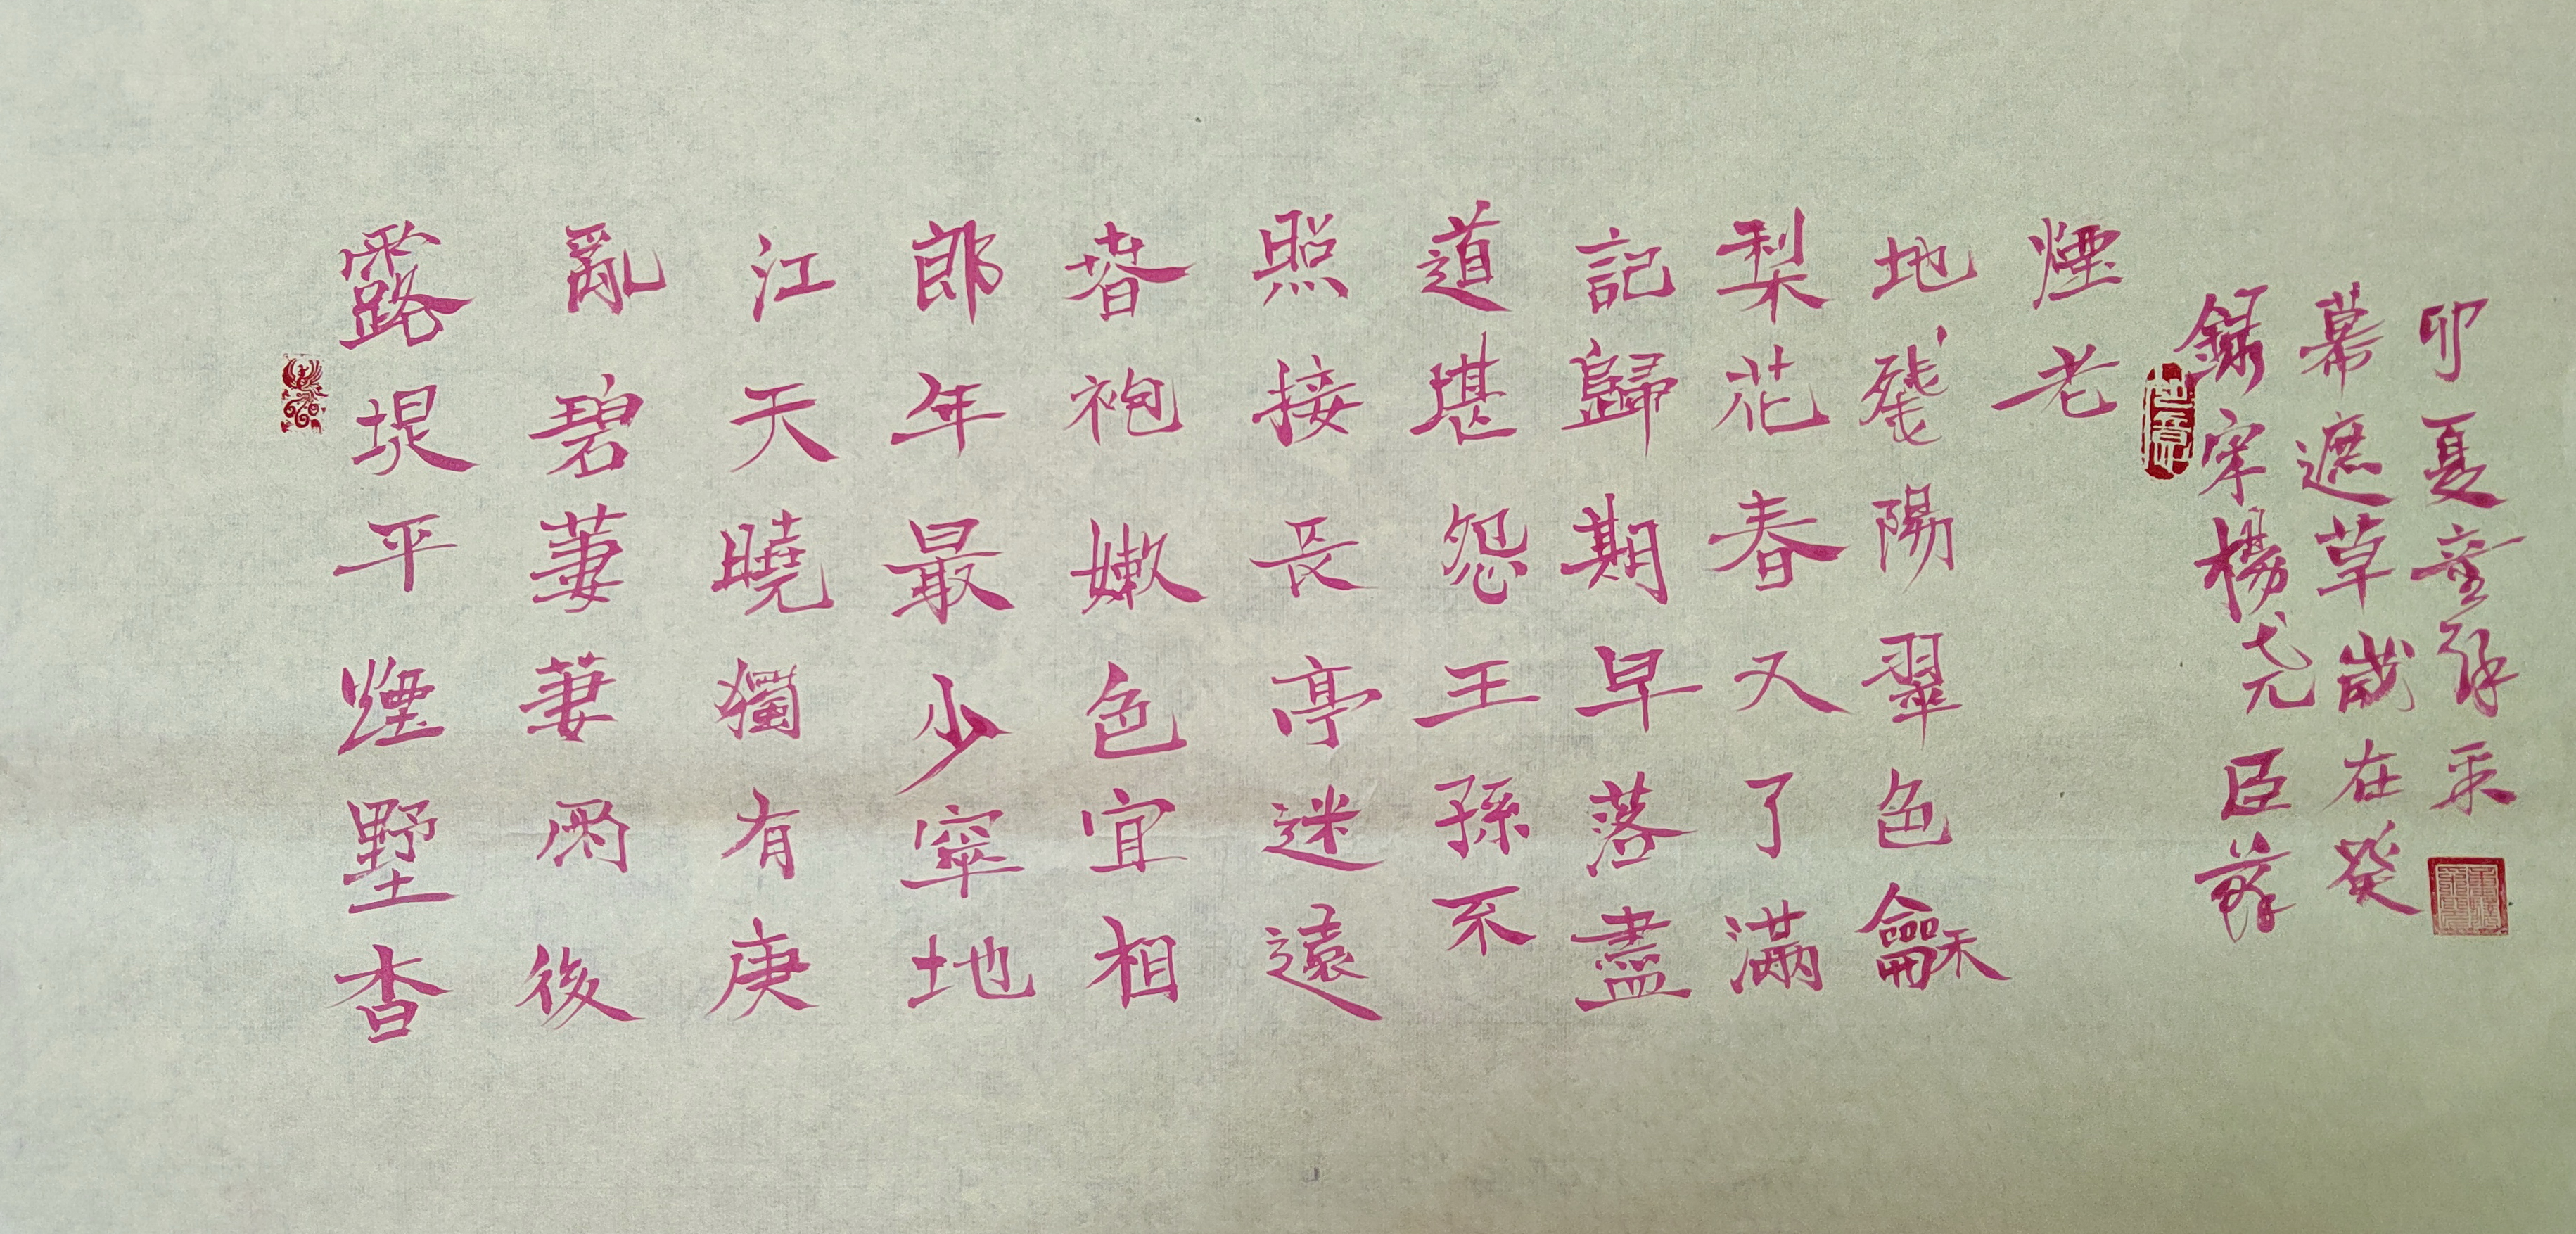 露堤平煙墅杳
亂碧萋萋雨後
江天曉獨有庚
郎年最少窣地
春袍嫩色宜相
照接長亭迷遠
道堪怨王孫不
記歸期早落盡
梨花春又了滿
地殘陽翠色龢
煙老
錄宋楊尧臣蘇
幕遮草歲在癸
卯夏童采